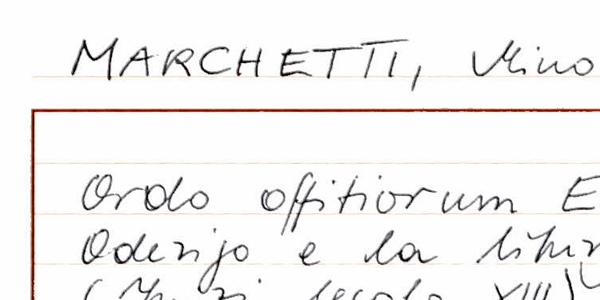 MARCHETTI, Mino
Ordo offitiorum E
Oderigo e la litur
secolo XIII)